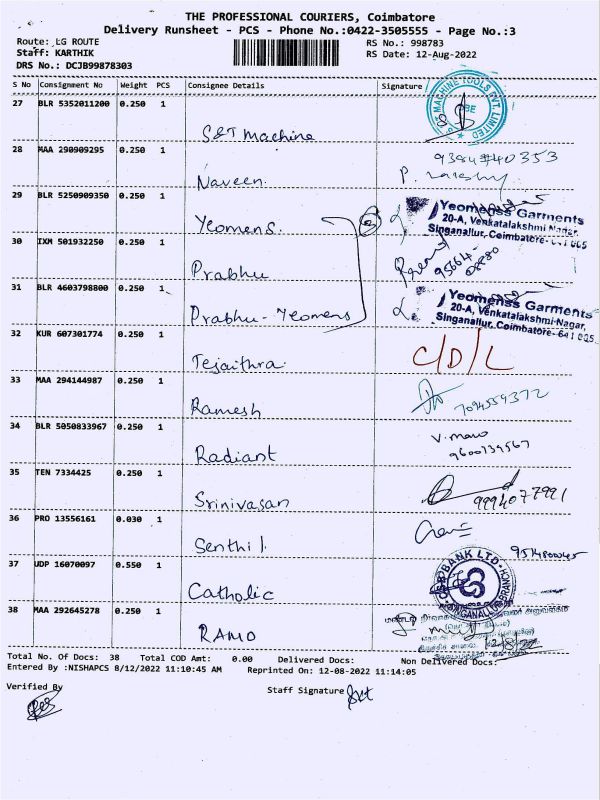 THE PROFESSIONAL COURIERS, Coimbatore
Delivery Runsheet - PCS - Phone No.:0422-3505555 - Page No.:3
Route: LG ROUTE
Staff: KARTHIK
DRS No.: DCJB99878303
RS No.: 998783
RS Date: 12-Aug-2022
S No Consignment No Weight PCS Consignee Details Signature
27 BLR 5352011200 0.250 1
S&T Machine
MACHINE TOOLS PVT. LIMITED
28 MAA 290909295 0.250 1
Naveen
P.
29 BLR 5250909350 0.250 1
Yeomens.
Yeomenss Garments
20-A, Venkatalakshmi Nagar,
Singanallur, Coimbatore-
30 IXM 501932250 0.250 1
Prabhu
95664-
31 BLR 4603798800 0.250 1
Prabhu-Yeomens
Yeomenss Garments
20-A, Venkatalakshmi-Nagar,
Singanallur, Coimbatore-641 005.
32 KUR 607301774 0.250 1
Tejaithra.
C/D/L
33 MAA 294144987 0.250 1
Ramesh
7094559372
34 BLR 5050833967 0.250 1
Radiant
V. mano
9600139567
35 TEN 7334425 0.250 1
Srinivasan
9994077991
36 PRO 13556161 0.030 1
Senthil.
37 UDP 16070097 0.550 1
Catholic
CSB BANK LTD
SINGANALLUR BRANCH
38 MAA 292645278 0.250 1
RAMO
12/8/22
Total No. Of Docs: 38 Total COD Amt: 0.00 Delivered Docs: Non Delivered Docs:
Entered By :NISHAPCS 8/12/2022 11:10:45 AM Reprinted On: 12-08-2022 11:14:05
Verified By
Staff Signature